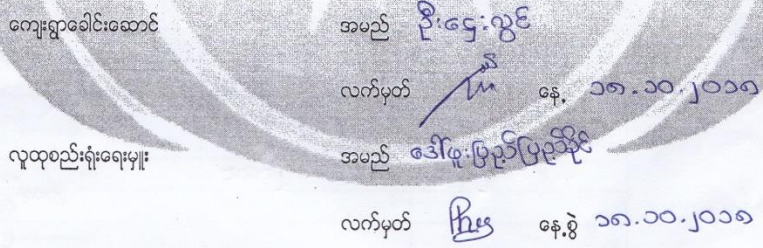 ကျေးရွာခေါင်းဆောင် အမည် ဦးဌေးလွင်
လက်မှတ် နေ့ ၁၈.၁၀.၂၀၁၈
လူထုစည်းရုံးရေးမှူး အမည် ဒေါ်ဖူးပြည့်ပြည့်ဝိုင်
လက်မှတ် Phu နေ့စွဲ ၁၈.၁၀.၂၀၁၈